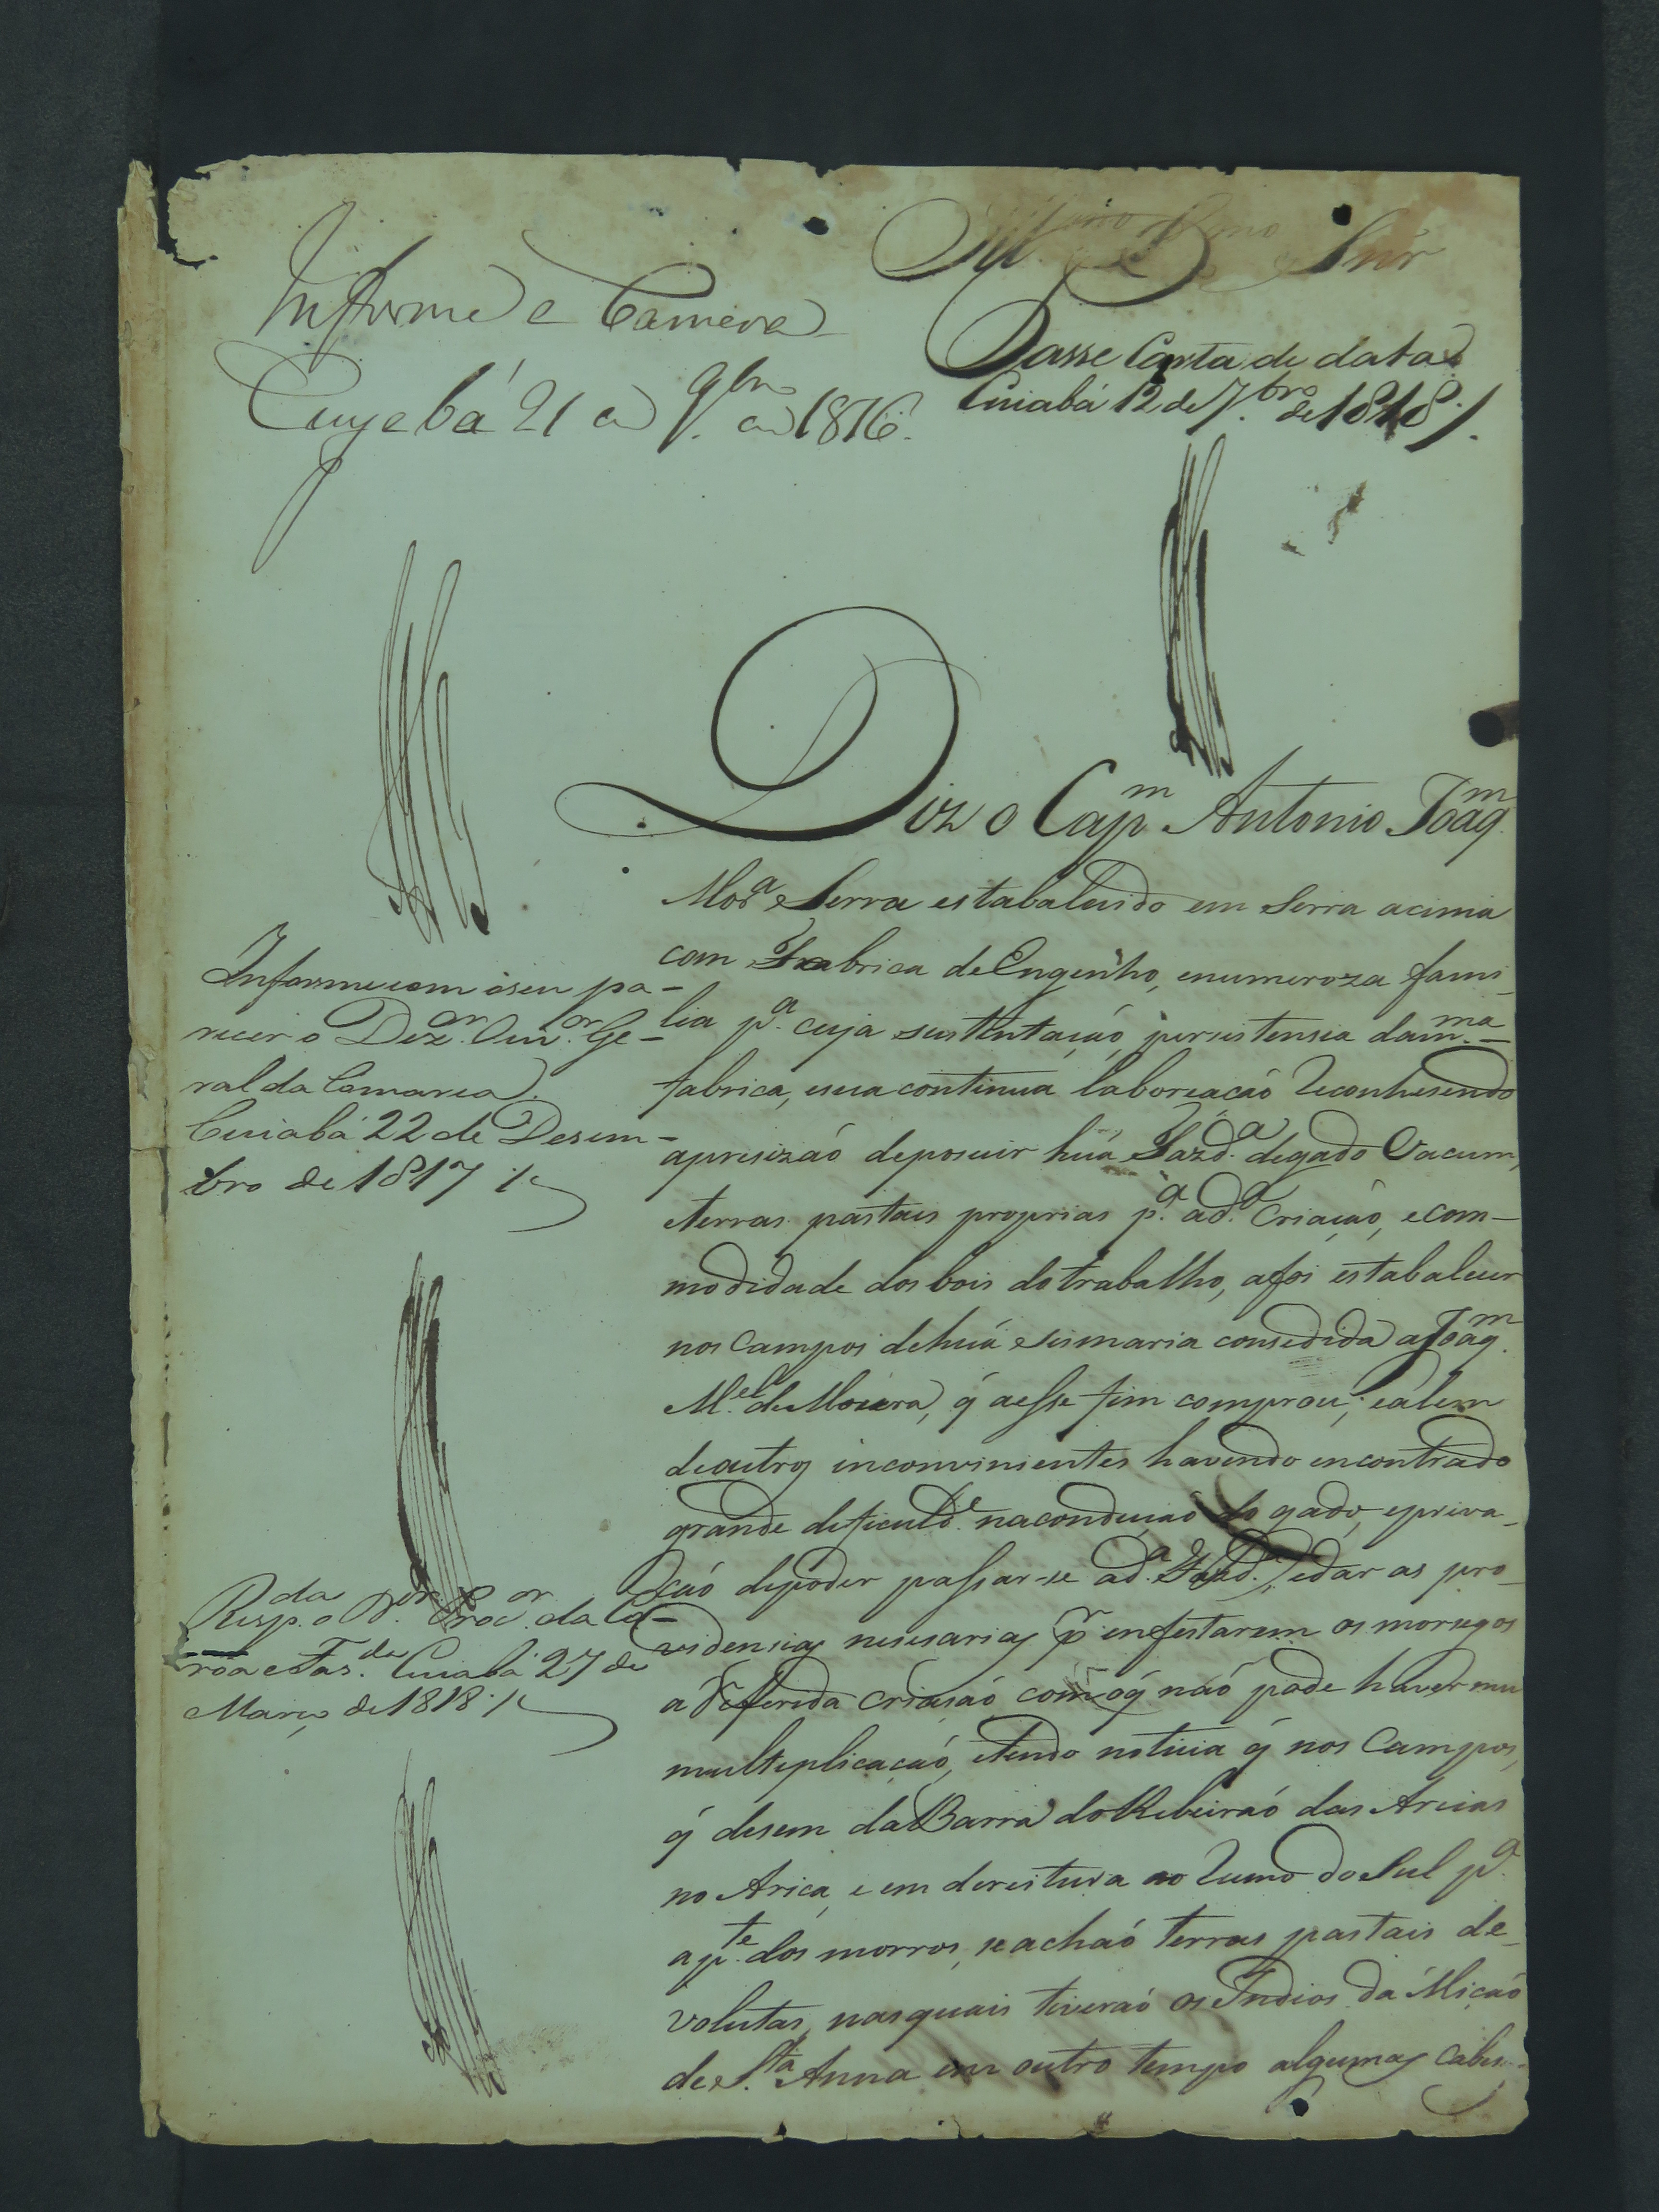 Ill.mo e Ex.mo Snr
Informe a Camera
Cuyabá 21 de 9.bro de 1816.
Passe Carta de data
Cuiabá 12 de 7.bro de 1818 /.
Diz o Cap.m Antonio Joaq.m
Mor.a Serra estabalecido em Serra acima
com Frabrica de Engenho, enumeroza fami
lia p.a cuja sustentação, persistensia dam.ma
fabrica, esua continua laboreacaó Reconhesendo
aprecizaó deposuir huá Fazd.a degado Vacum,
eterras pastais proprias p.a ad.a Criação, ecom-
modidade dos bois do trabalho, afoi estabalecer
nos Campos dehuá Sismaria consedida aJoaq.m
M.el de Moura, q̃ aesse fim comprou; ealem
deoutros inconvinientes havendo encontrado
grande deficuld.e naconducaó do gado, epriva-
caó depoder passar-se ad.a Fazd.a, edar as pro-
videnсias nesesarias pr enfestarem os morsegos
aReferida criasaó com oq̃ naó pode haver mu
multeplicacaó, etendo noticia q̃ nos Campos,
q̃ desem da Barra do Ribeiraó das Areias
no Arica, e em dereitura ao Rumo do Sul p.a
ap.te dos morros, seachaó terras pastais de-
volutas, nasquais tiveraó os Indios da Miçaó
de S.ta Anna em outro tempo algumas Cabe-
Informe com oseu pa-
recer o Dez.or Ouv.or Ge-
ral da Comarca.
Cuiabá 22 de Desem-
bro de 1817 /.
Resp.da o D.or Proc.or da Co-
roa e Faz.da Cuiabá 27 de
Março de 1818 /.